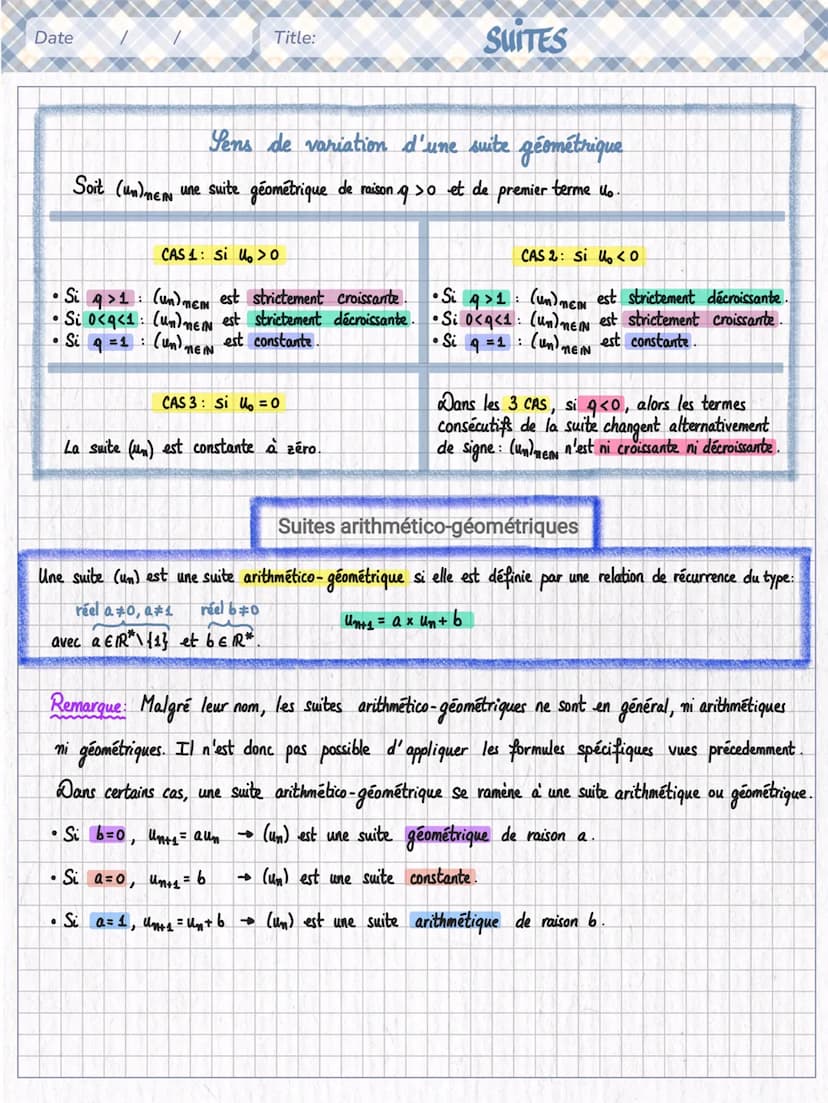 Date / / Title: SUITES
Sens de variation d'une suite géométrique
Soit (un)n∈ℕ une suite géométrique de raison q >0 et de premier terme u₀.
CAS 1 : si u₀ > 0
• Si q >1 : (un)n∈ℕ est strictement croissante.
• Si 0<q<1 : (un)n∈ℕ est strictement décroissante.
• Si q =1 : (un)n∈ℕ est constante.
CAS 2 : si u₀ < 0
• Si q >1 : (un)n∈ℕ est strictement décroissante.
• Si 0<q<1 : (un)n∈ℕ est strictement croissante.
• Si q =1 : (un)n∈ℕ est constante.
CAS 3 : si u₀ = 0
La suite (un) est constante à zéro.
Dans les 3 CAS, si q<0, alors les termes
consécutifs de la suite changent alternativement
de signe : (un)n∈ℕ n'est ni croissante ni décroissante.
Suites arithmético-géométriques
Une suite (un) est une suite arithmético-géométrique si elle est définie par une relation de récurrence du type:
réel a≠0, a≠1 réel b≠0
un+1 = a × un + b
avec a ∈ ℝ*\{1} et b ∈ ℝ*.
Remarque: Malgré leur nom, les suites arithmético-géométriques ne sont en général, ni arithmétiques
ni géométriques. Il n'est donc pas possible d'appliquer les formules spécifiques vues précedemment.
Dans certains cas, une suite arithmético-géométrique se ramène à une suite arithmétique ou géométrique.
• Si b=0, un+1 = aun → (un) est une suite géométrique de raison a.
• Si a=0, un+1 = b → (un) est une suite constante.
• Si a=1, un+1 = un + b → (un) est une suite arithmétique de raison b.